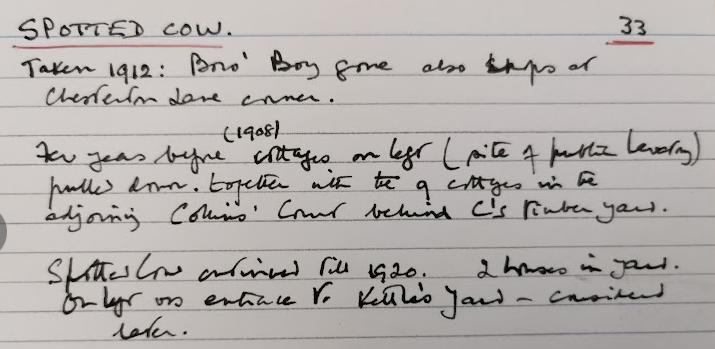 SPOTTED COW. 33
Taken 1912: Boro' Boy gone also shops at
Chesterton Lane corner.
(1908)
Few years before cottages on left (site of public lavatory)
pulled down. together with the 9 cottages in the
adjoining Collins' Court behind C's timber yard.
Spotted Cow continued till 1920. 2 houses in yard.
On left was entrance to Kettle's Yard – considered
later.